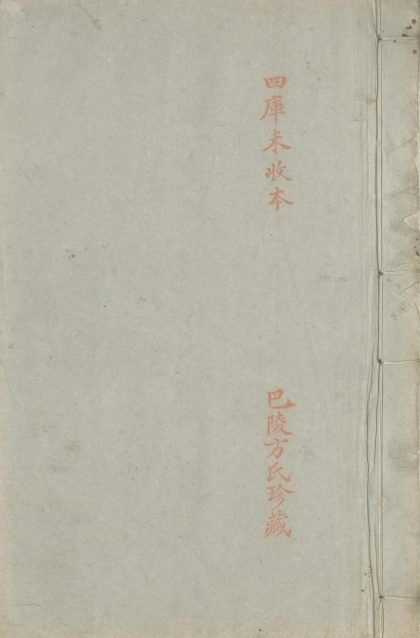 四庫未收本
巴陵方氏珍藏